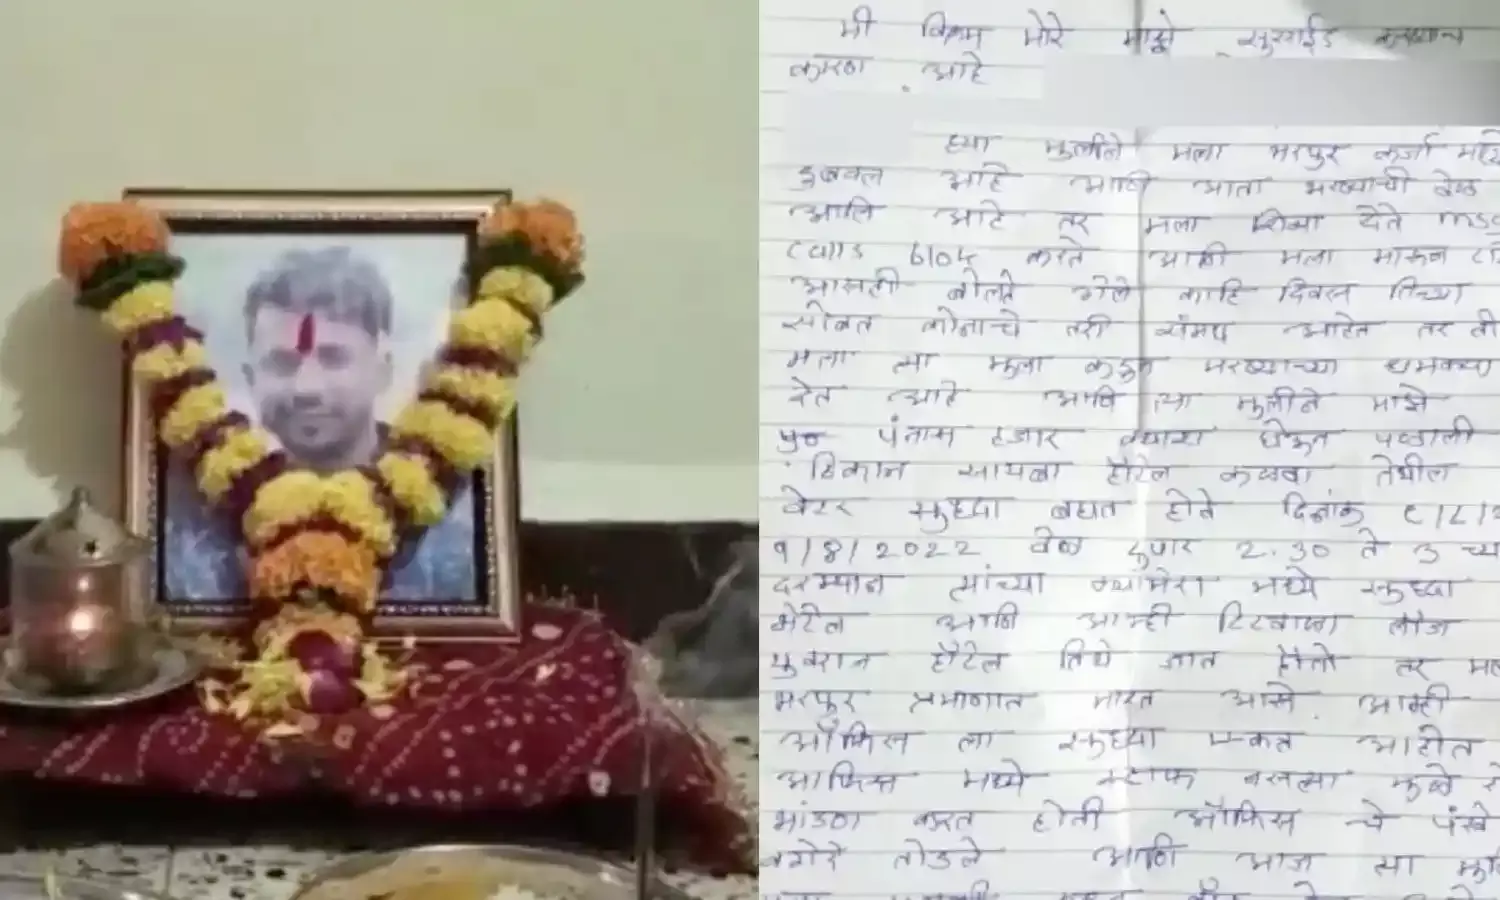 मी विक्रम मोरे माझे सुसाईड करण्याच
कारण आहे
ह्या मुलीने मला भरपुर कर्जा मध्ये
डुबवल आहे आणि आता भरण्याची वेळ
आलि आहे तर मला शिव्या देते msg
calls block करते आणी मला मारून
आसती बोलते गेले काहि दिवस तिच्या
सोबत कोनाचे तरी संमध आहेत तर ती
मला त्या मुला कडुन मारण्याच्या धमक्या
देत आहे आणि त्या मुलीने माझे
पंनास हजार घेऊन पळाली
ठिकान सायबा हॉटेल कळवा तेथील
वेटर सुध्दा बघत होते दिनांक
9/8/2022 वेळ दुपार 2.30 ते 3 च्या
दरम्यान त्यांच्या क्यामेरा मध्ये सुध्दा
भेटेल आणी आम्ही टिटवाळा लॉज
युवराज हॉटेल तिथे जात होतो तर मला
भरपुर प्रमाणात मारत आसे आम्ही
ऑफिस ला सुध्या एकत्र आहोत
आफिस मध्ये स्टाफ नसल्या मुळे
भांडण करत होती ऑफिस चे पंखे
वगेरे तोडले आणि आज त्या